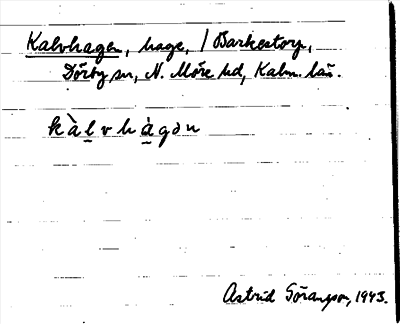 Kalvhagen, hage, / Barkestorp,
Dörby sn, N. Möre hd, Kalm. län.
kàl̲vhà̲gən
Astrid Göransson, 1943.